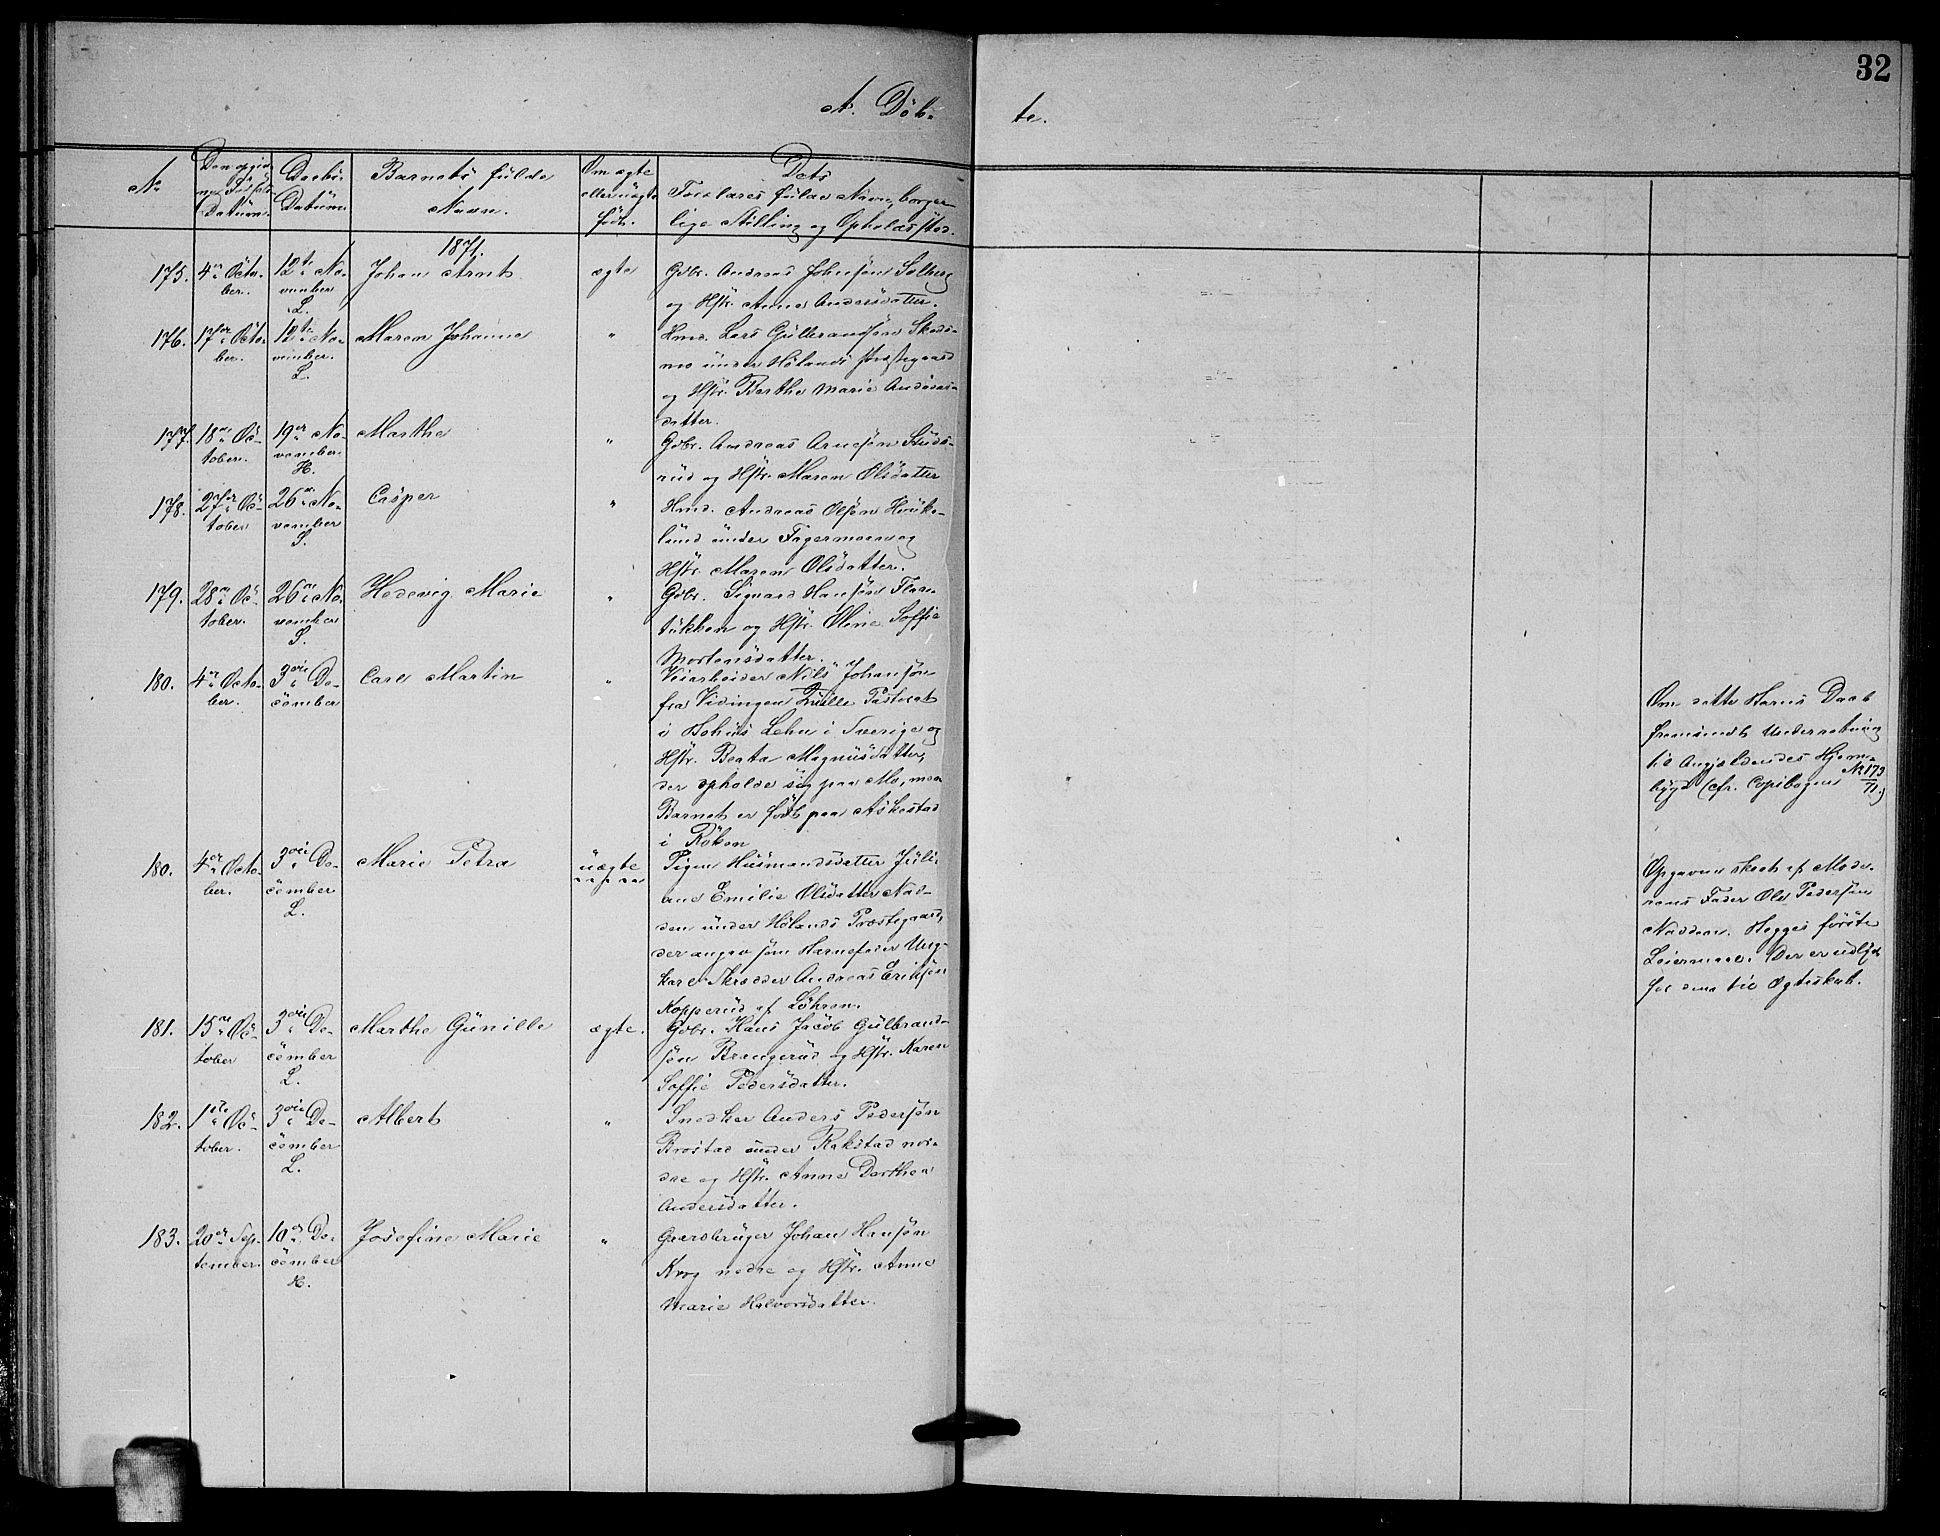 32
A. Döb-
te.
No
Den opgiv-
ne Födsels
Datum.
Daabs-
Datum.
Barnets fulde
Navn.
Om ægte
eller uægte
født.
Dets
Forældres fulde Navn, borger-
lige Stilling og Opholdssted.
1871.
175.
4de Octo-
ber.
12te No-
vember
L.
Johan Arnt
ægte
Gdbr. Andreas Johnsøn Solberg
og Hstr. Anne Andersdatter.
176.
17de Octo-
ber.
12te No-
vember.
L.
Maren Johanne
"
Hmd. Lars Gulbrandsøn Skeds-
mo under Hölands Præstegaard
og Hstr. Berthe Marie Andreas-
datter.
177.
18de Oc-
tober.
19de No-
vember.
H.
Marthe
"
Gdbr. Andreas Arnesøn Studs-
rud og Hstr. Maren Olsdatter
178.
27de Oc-
tober
26de No-
vember
S.
Casper
"
Hmd. Andreas Olsøn Hauke-
lund under Fagermoen og
Hstr. Maren Olsdatter.
179.
28de Oc-
tober.
26de No-
vember
S.
Hedevig Marie
"
Gdbr. Sigvard Hansøn Flan-
tukken og Hstr. Oline Soffie
Mortensdatter.
180.
4de Octo-
ber.
3die De-
cember
Carl Martin
"
Veiarbeider Nils Johansøn
fra Vidingen Pastorat
i Bohus Lehn i Sverige og
Hstr. Beata Magnusdatter,
der opholde sig paa Mo, men
Barnet er født paa Askestad
i Röken
Om dette Barns Daab
fremsendt Underretning
til Angjældendes Hjem-
bygd (cfr. Copibogens No 173/71.)
180.
4de Octo-
ber.
3die De-
cember
L.
Marie Petra
uægte
Pigen Husmandsdatter Juli-
ane Emilie Olsdatter Nad-
den under Hölands Præstegaard,
der angav som Barnefader Ung-
karl Skrædder Andreas Eriksøn
Kopperud af
Opgaven skeet af Mode-
rens Fader Ole Pedersøn
Nadden. Begges første
Leiermaal. Der er udlyst
for dem til Ægteskab.
181.
15de Oc-
tober
3die De-
cember
L.
Marthe Gunille
ægte.
Gdbr. Hans Jacob Gulbrand-
søn Brangerud og Hstr. Karen
Soffie Pedersdatter.
182.
1ste Oc-
tober.
3die De-
cember
L.
Albert
"
Snedker Anders Pedersøn
Brostad under Rakstad nor-
dre og Hstr. Anne Dorthea
Andersdatter.
183.
20de Sep-
tember.
10de De-
cember
H.
Josefine Marie
"
Gaardbruger Johan Hansøn
Krog nedre og Hstr. Anne
Marie Halvorsdatter.